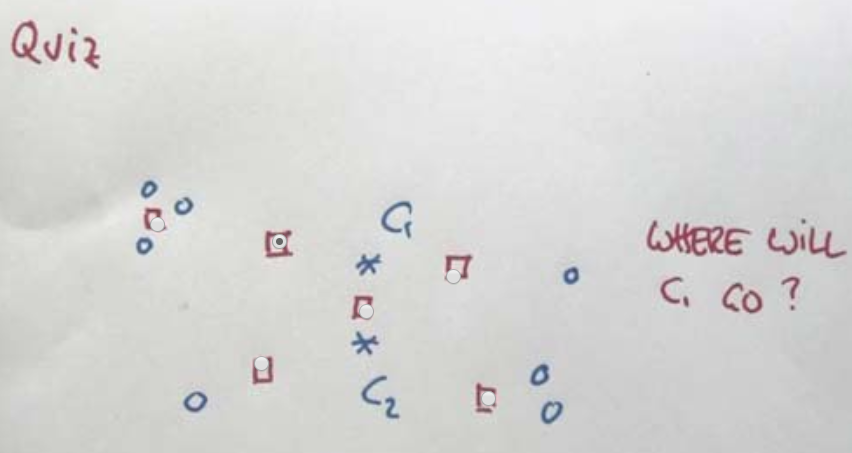 Quiz
C₁
WHERE WILL
C₁ GO?
C₂